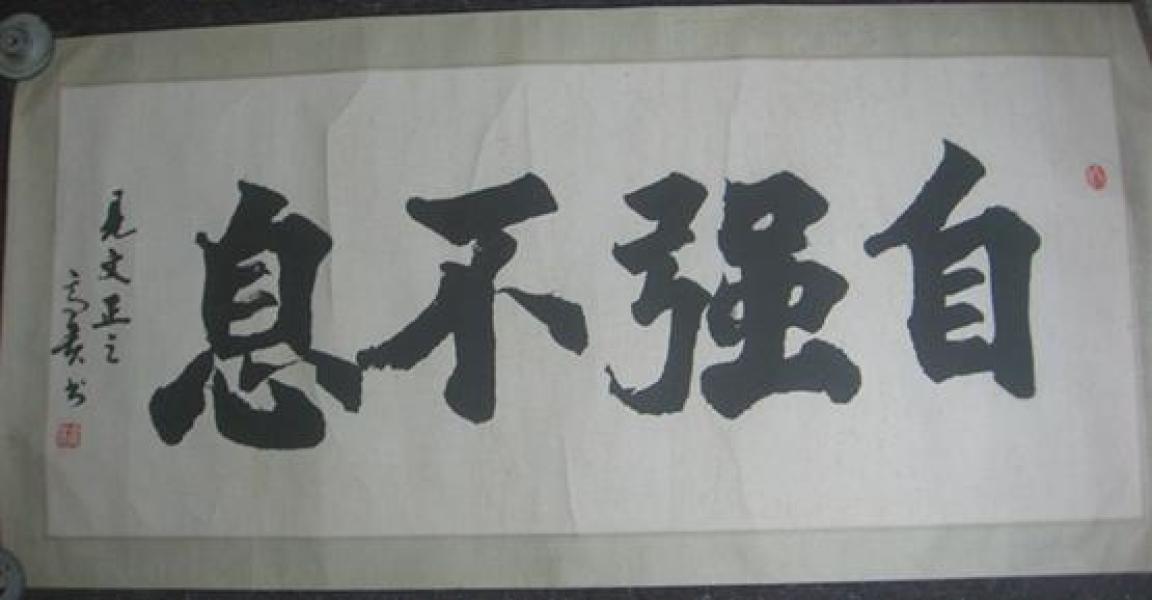 自强不息
见文正之
高英书